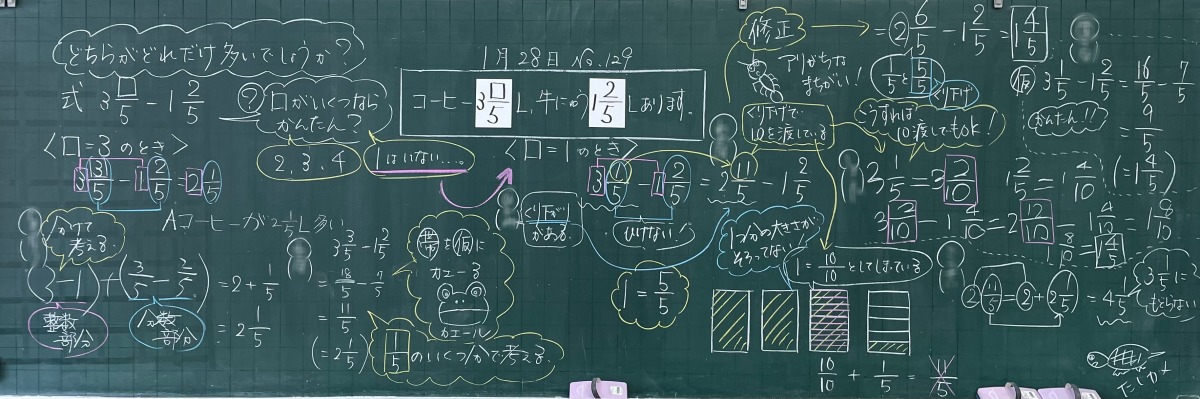 どちらがどれだけ多いでしょうか？
式 3□/5 − 1 2/5
？ □がいくつなら
かんたん？
2, 3, 4
1はいない…。
＜□＝3のとき＞
3 3/5 − 1 2/5 = 2 1/5
A コーヒーが2 1/5 L多い
分けて
考える
(3−1) + (3/5 − 2/5) = 2 + 1/5
= 2 1/5
整数
部分
分数
部分
3 3/5 − 1 2/5
= 18/5 − 7/5
= 11/5
(= 2 1/5)
帯を仮に
カエーる
カエール
1/5 のいくつ分で考える
1月28日 No.129
コーヒー3□/5 L, 牛にゅう1 2/5 Lあります。
＜□＝1のとき＞
3 1/5 − 1 2/5 = 2 11/5 − 1 2/5
くり下がり
がある
ひけない!
1 = 5/5
修正
アリがちな
まちがい!
くり下げで
10を渡している
1つ分の大きさが
そろってない
1 = 10/10 としてしまっている
10/10 + 1/5 = 11/5
= 2 6/5 − 1 2/5 = 1 4/5
1/5と5/5
くり下げ
こうすれば
10渡してもOK!
3 1/5 = 3 2/10
1 2/5 = 1 4/10
3 2/10 − 1 4/10 = 2 12/10
1 4/10 = 1 8/10
1 4/5
仮 3 1/5 − 1 2/5 = 16/5 − 7/5
かんたん!!
= 9/5
(= 1 4/5)
2 11/5 = 2 + 2 1/5 = 4 1/5
3 1/5 に
もどらない
たしカメ